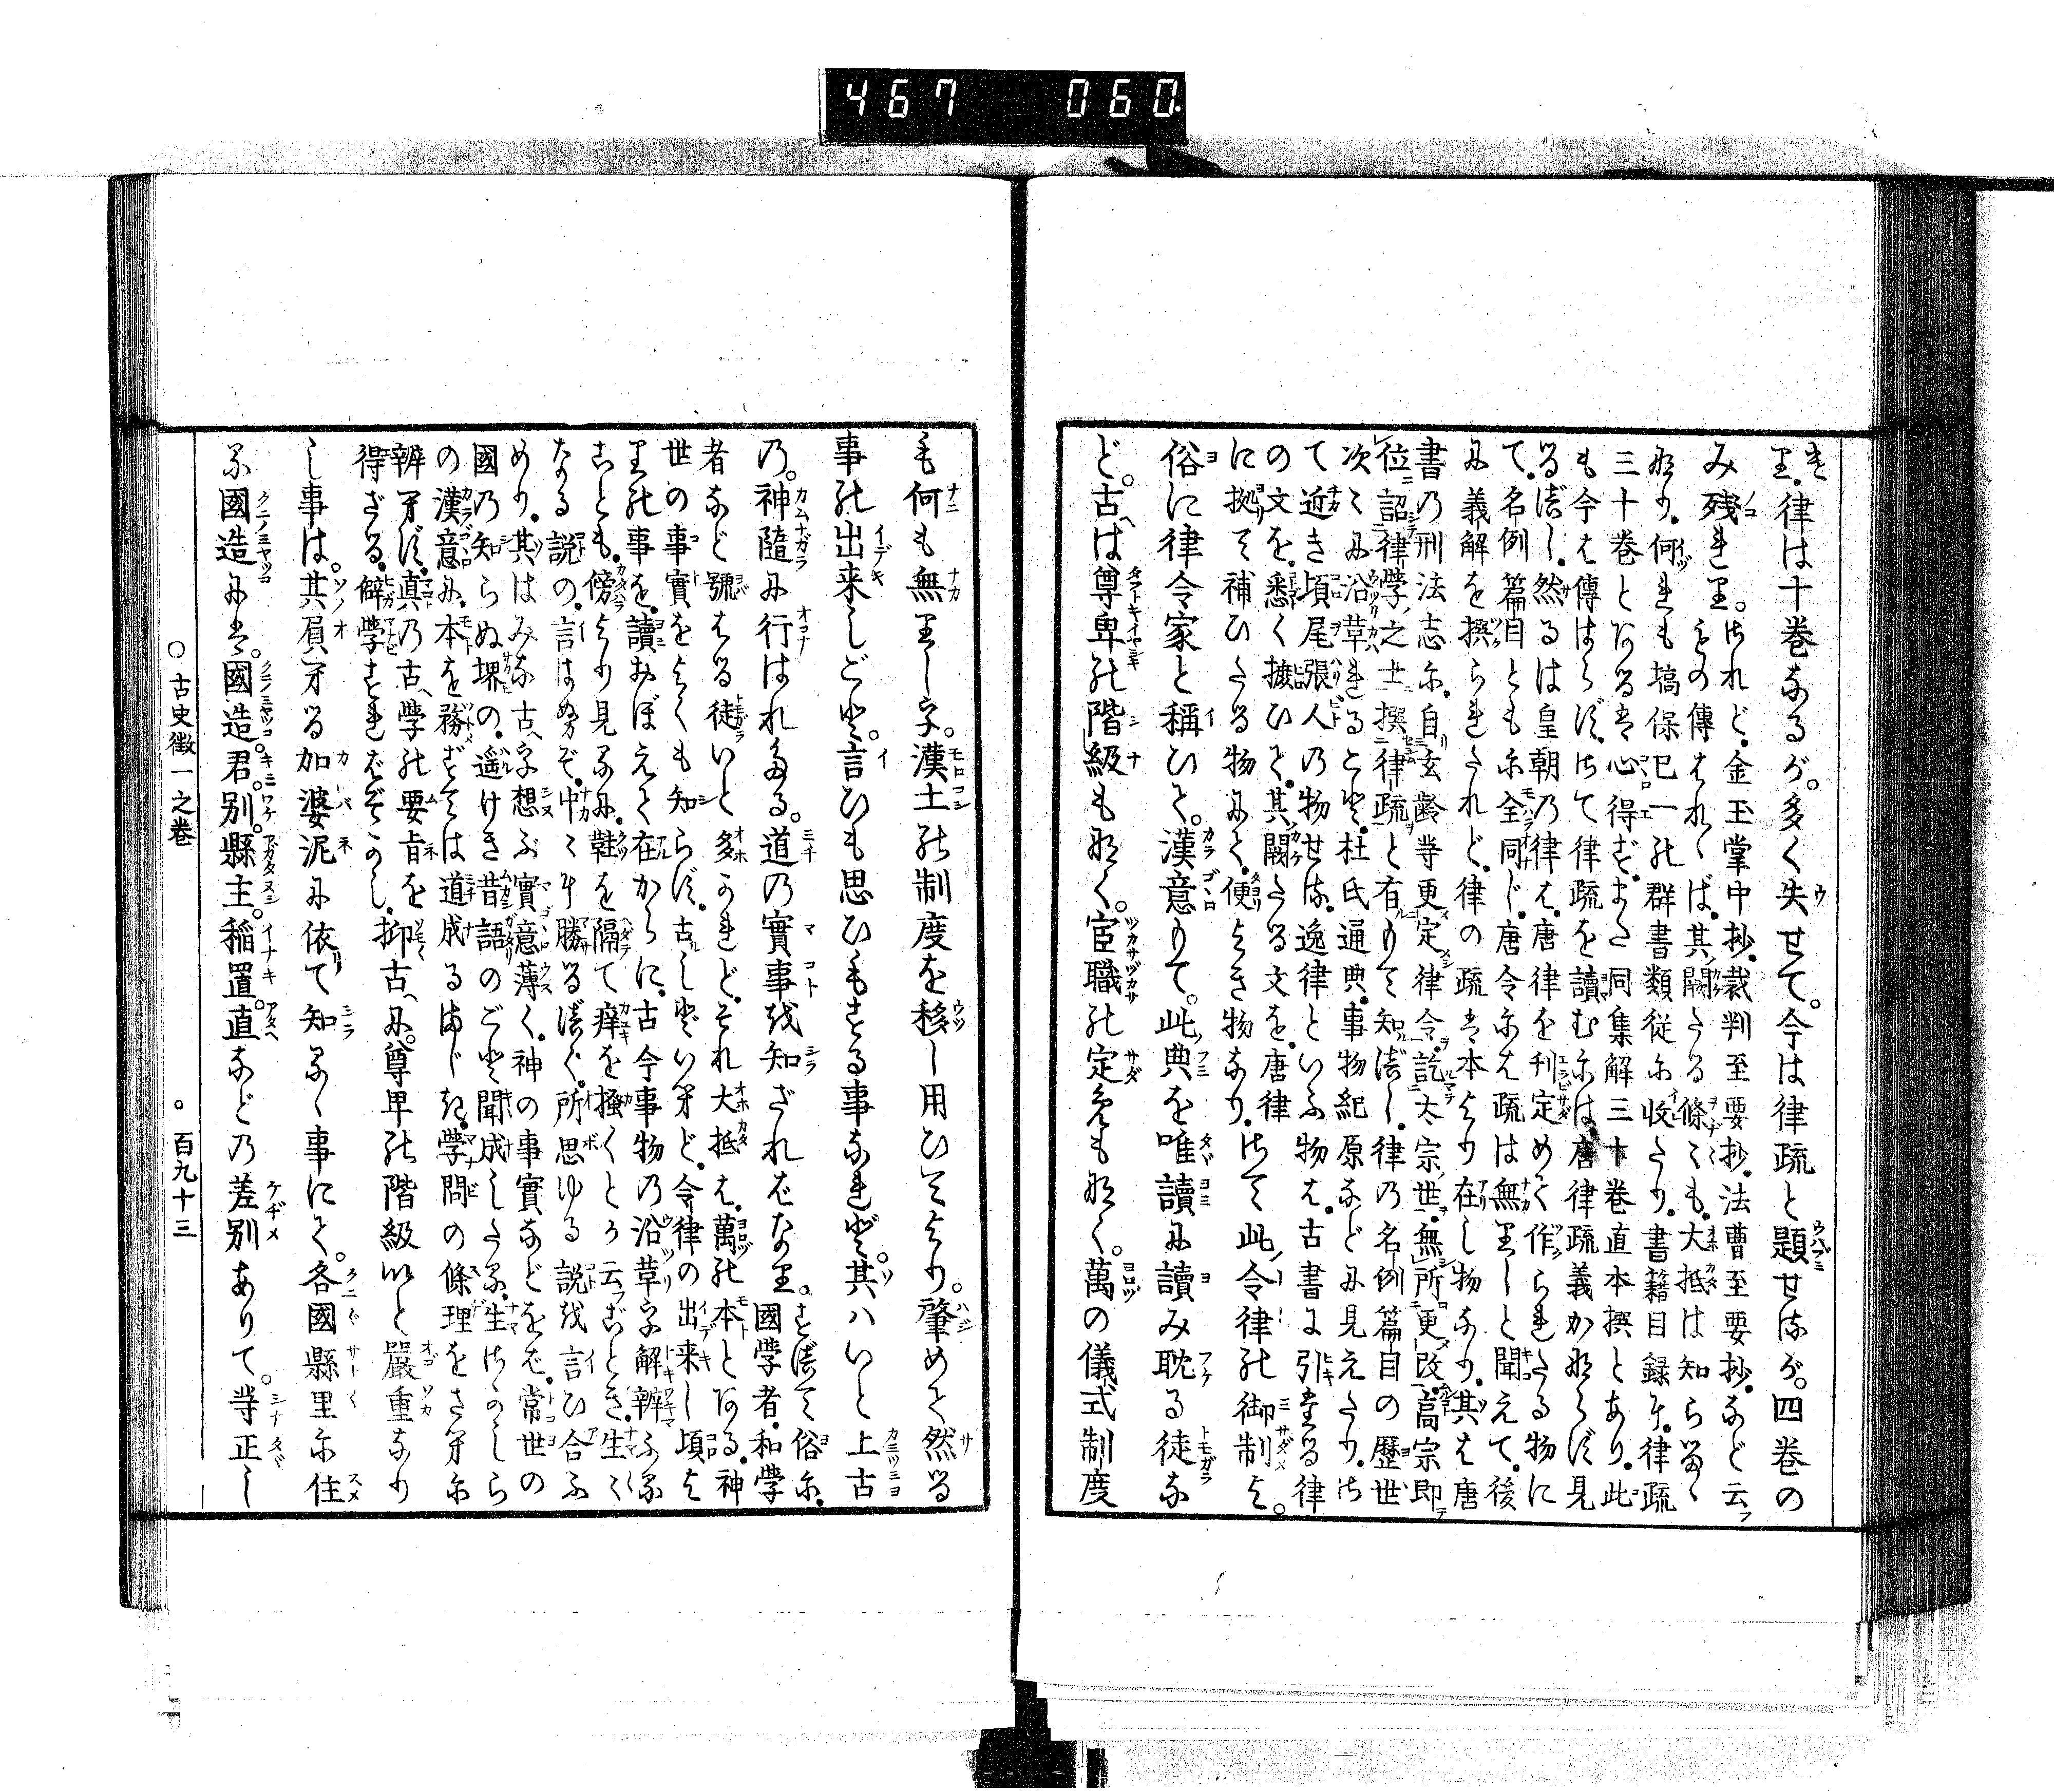 467 060
り。律は十巻なるが。多く失せて。今は律疏と題せるが。四巻の
み殘れり。されど。金玉掌中抄。裁判至要抄。法曹至要抄。など云
ものの傳はれゝば。其闕たる條々も。大抵は知らるゝ
なり。何れも塙保己一が群書類從に收たり。書籍目録に。律疏
三十巻とあるは。心得ず。また同集解三十巻直本撰とあり。此
も今は傳はらず。さて律疏を讀むには。唐律疏義かならず見
るべし。然るは皇朝の律は。唐律を刊定めて作られたる物に
て。名例篇目ともに全同じ。唐令には疏は無りしと聞えて。後
に義解を撰られたれど。律の疏は本より在し物なり。其は唐
書の刑法志に。自玄齡等更定律令。訖太宗世。無所更改。高宗即
位。詔律學之士撰律疏と有りて知べし。律の名例篇目の歷世
次々に沿革れること。杜氏通典。事物紀原などに見えたり。さ
て近き頃尾張人の物せる。逸律といふ物は。古書に引たる律
の文を。悉く摭ひて。其闕たる文を。唐律
に拠て補ひたる物にて。便よき物なり。さて此令律の御制を。
俗に律令家と稱ひて。漢意もて。此典を唯讀に讀み耽る徒な
ど。古は尊卑の階級もなく。宦職の定めも無く。萬の儀式制度
も何も無りし字。漢土の制度を移し用ひてより。肇めて然る
事の出来しごと。言ひも思ひもする事なれど。其ハいと上古
の。神隨に行はれたる。道の實事を知ざればなり。すべて俗に。
國學者。和學
者など號はる徒いと多かれど。それ大抵は。萬の本とある。神
世の事實をよくも知らず。古しといへど。令律の出来し頃よ
りの事を。讀おぼえて在からに。古今事物の沿革字解辨ふる
ことも。傍より見るに。鞋を隔て痒を搔くとか云ごとき。生々
なる説の。言はぬぞ。中々に勝るべく。所思ゆる説を言ひ合ふ
めり。其はみな古學想ぶ實意薄く。神の事實などをば。常世の
國の知らぬ堺の。遥けき昔語のごと聞成したる。生さかしら
の漢意に。本を務ずては道成るまじき。學問の條理をさへに
辨へず。真の古學の要旨を
得ざる。僻學すればぞかし。抑古に。尊卑の階級いと嚴重なり
し事は。其負へる加婆泥に依て知るゝ事にて。各國縣里に住
る國造には。國造。君。別。縣主。稲置。直などの差別ありて。等正し
○古史徵一之卷
○百九十三